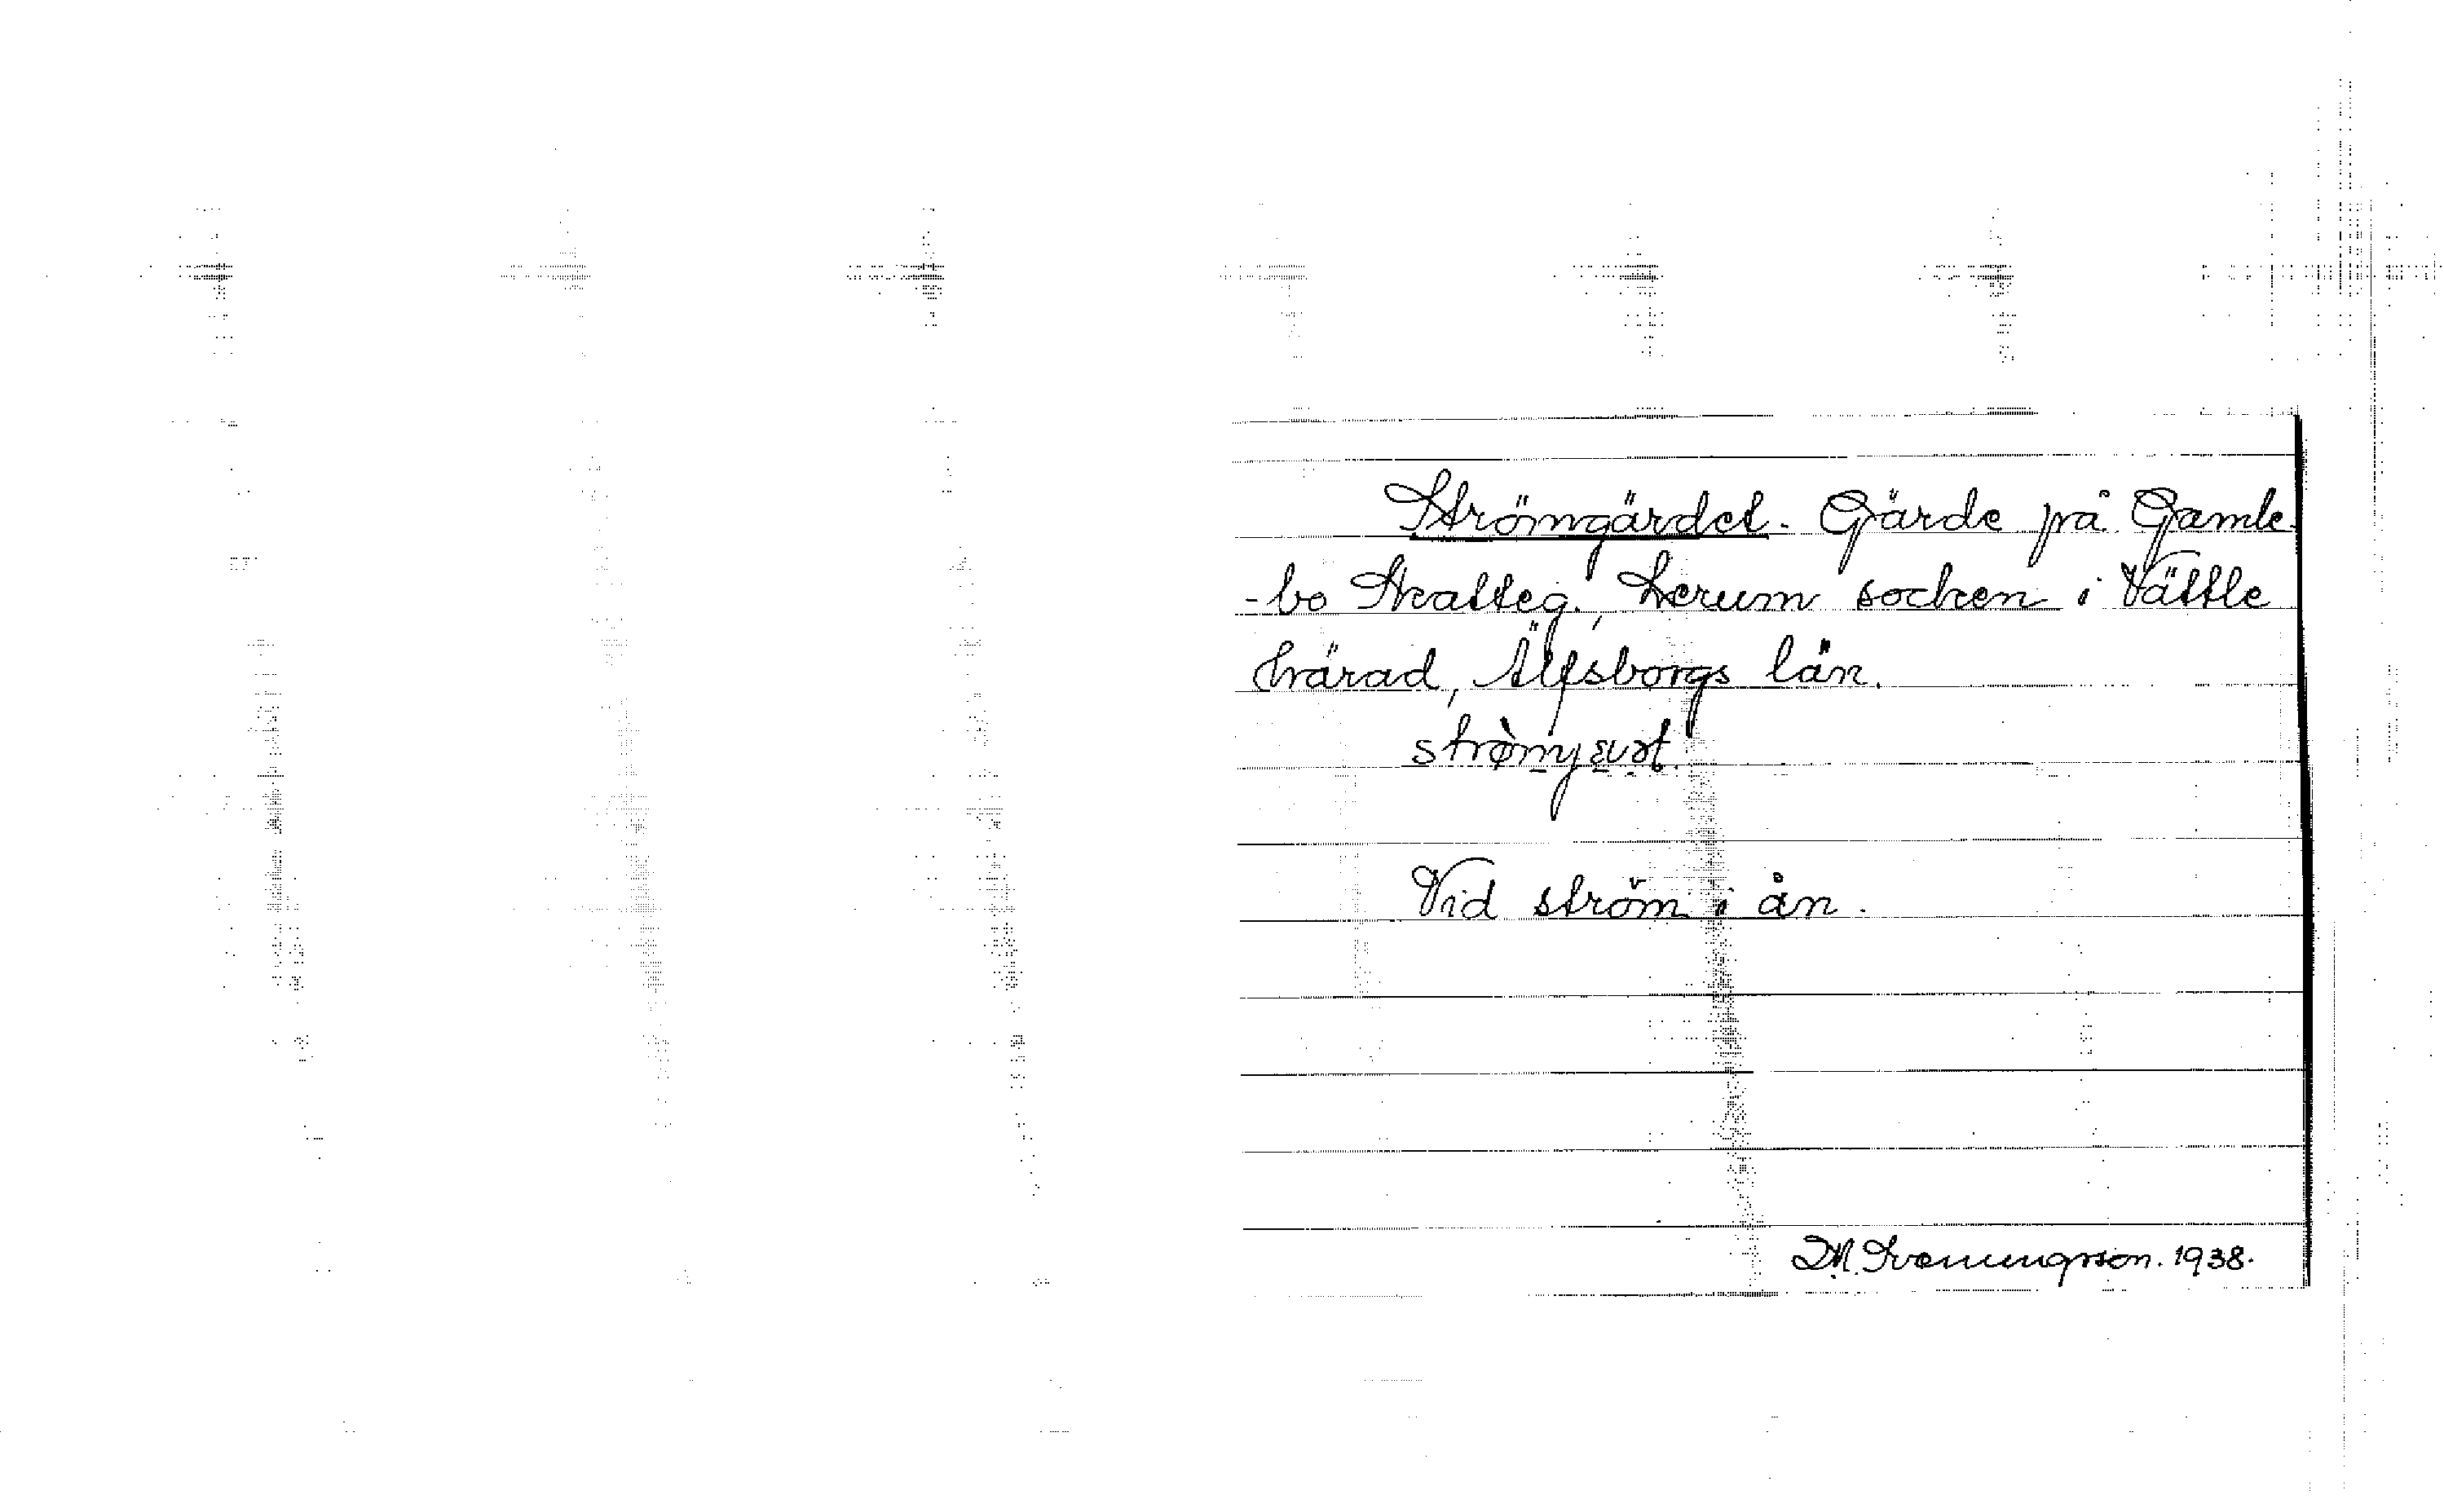 Strömgärdet. Gärde på Gamle-
-bo Skatteg. Lerum socken i Vättle
härad, Älfsborgs län.
Vid ström i ån.
1938.